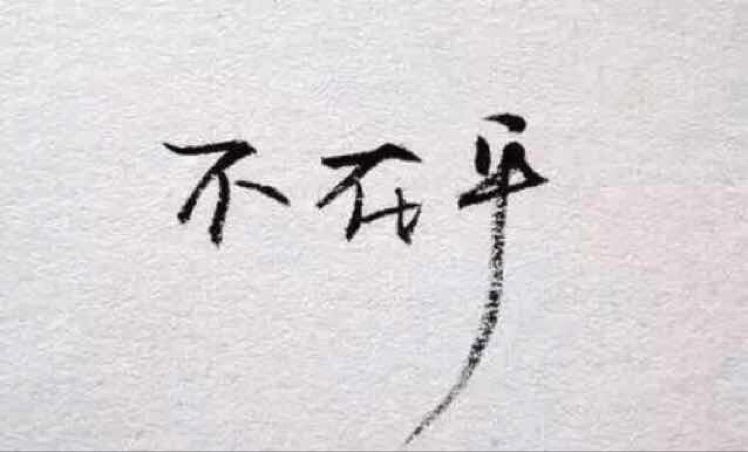 不在乎